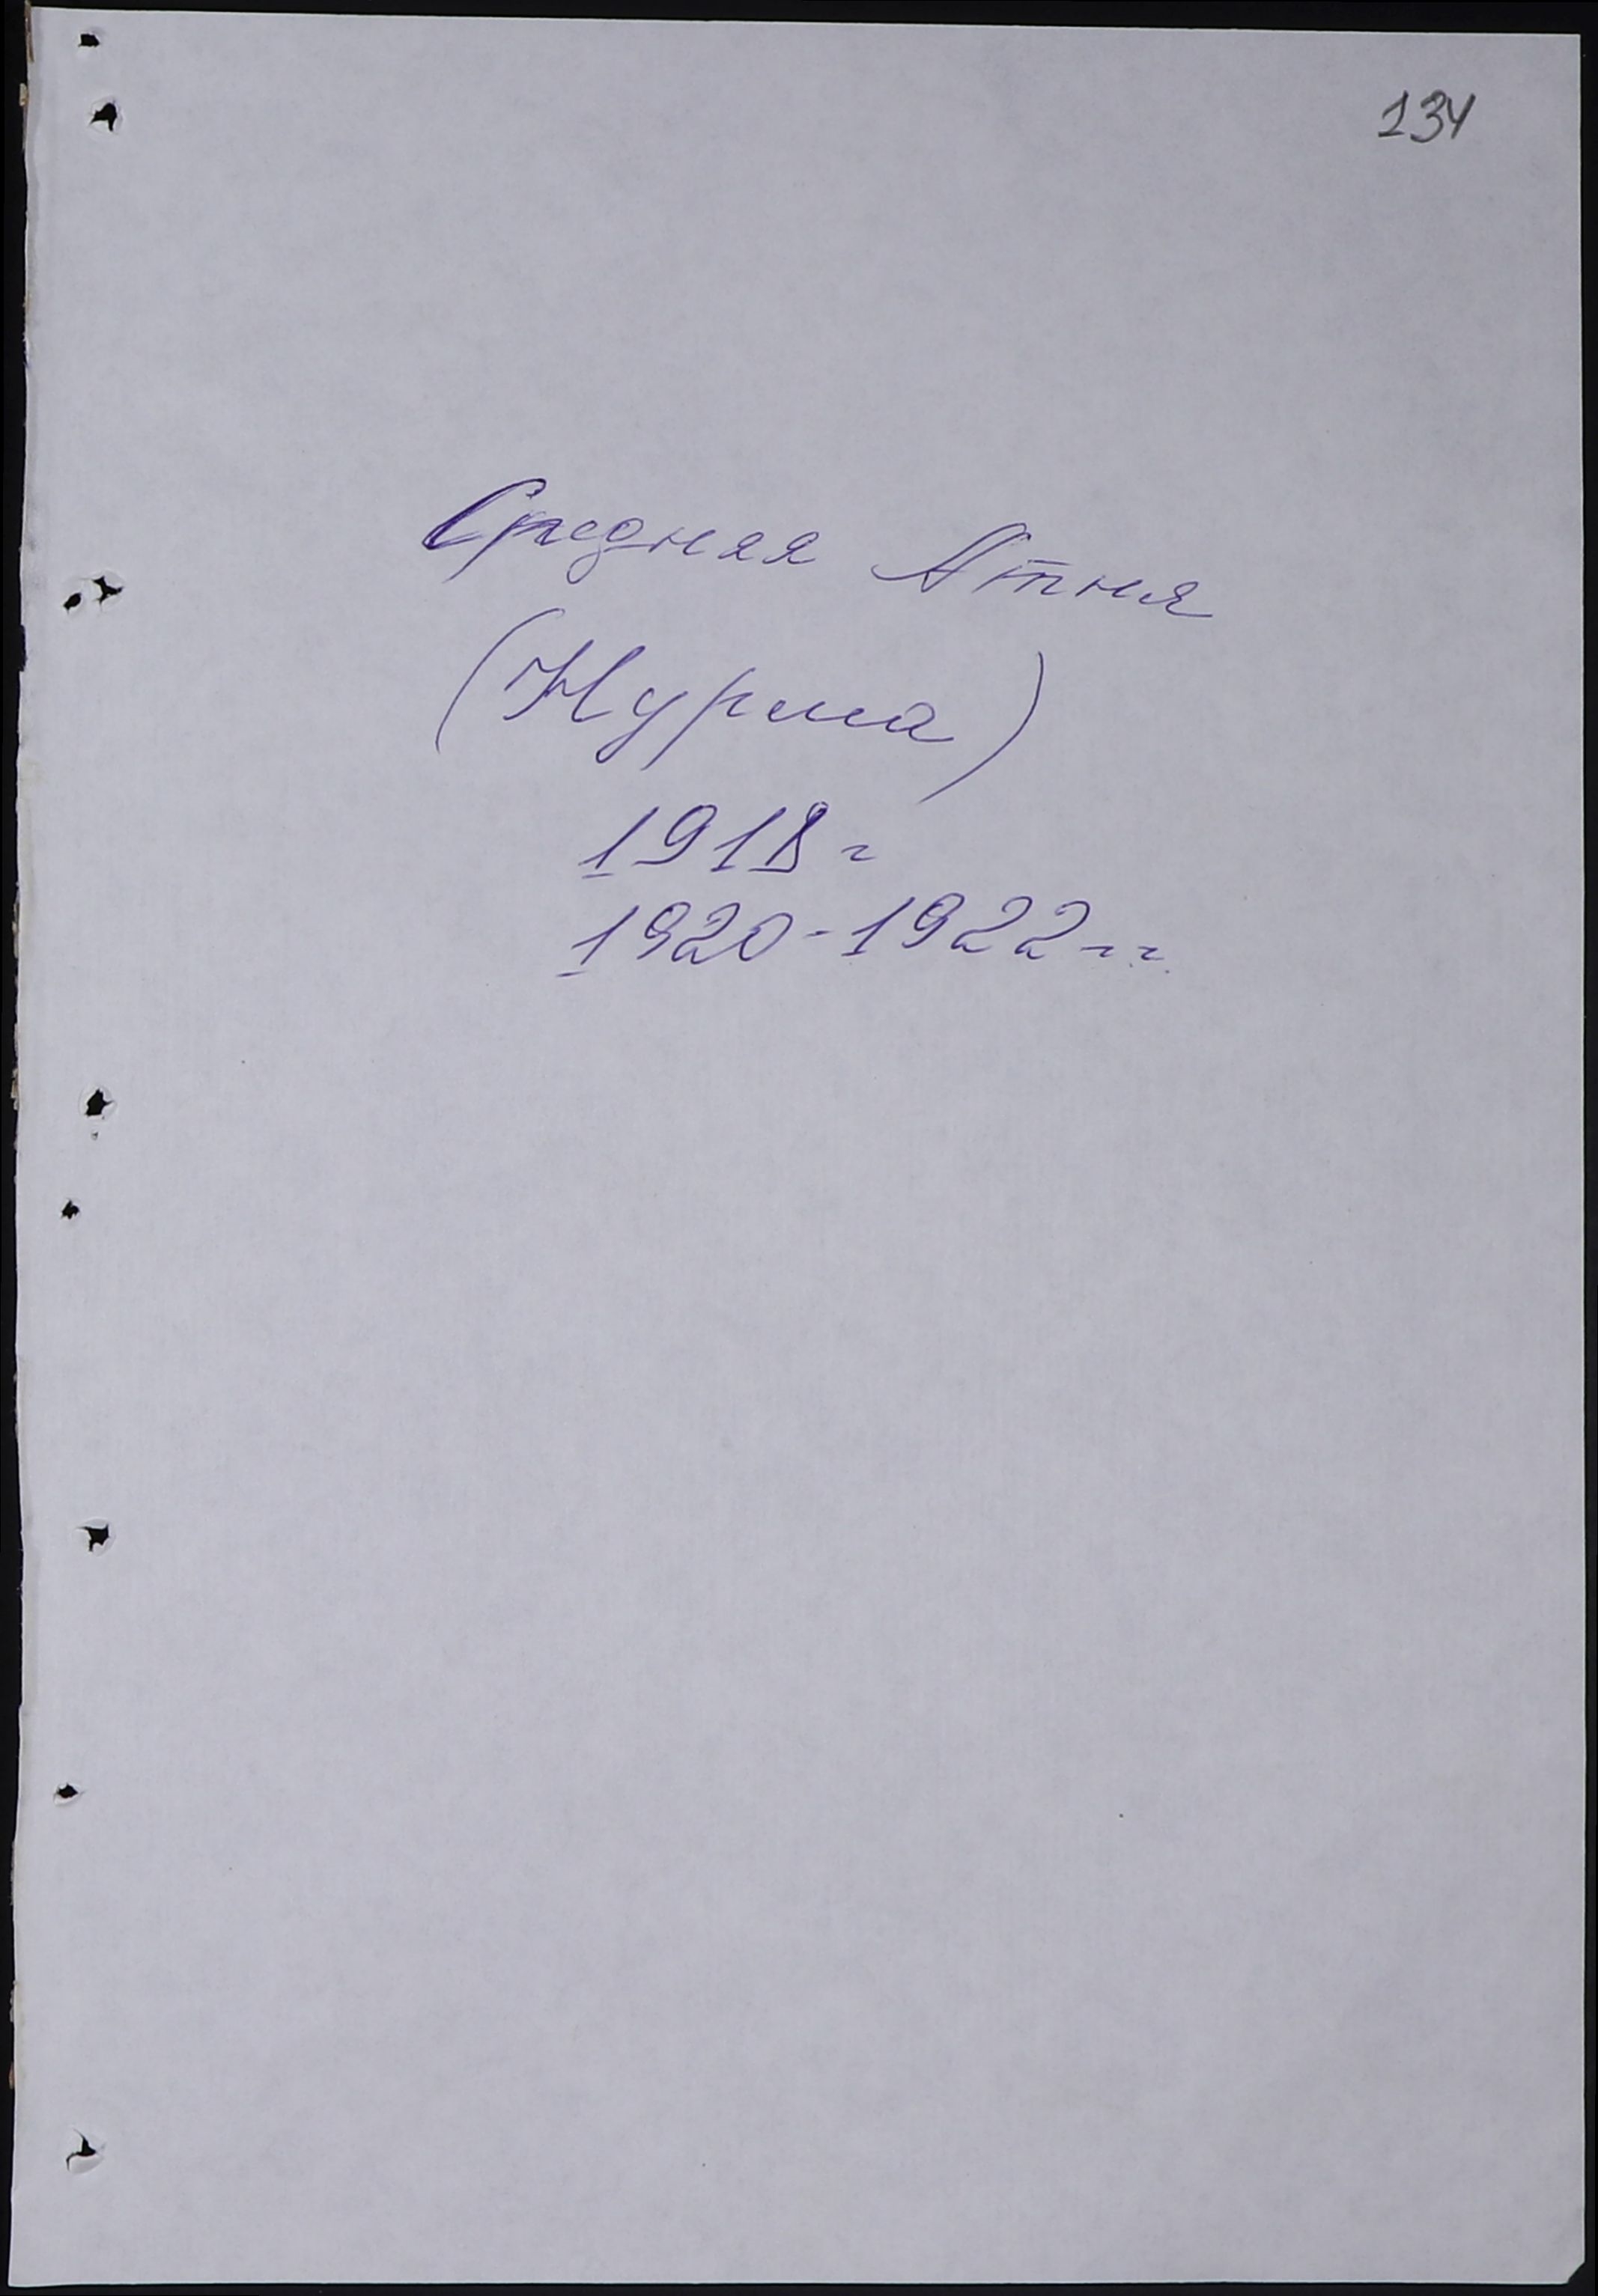 134
Средняя Атня
(Нурма)
1918 г
1920-1922 гг.